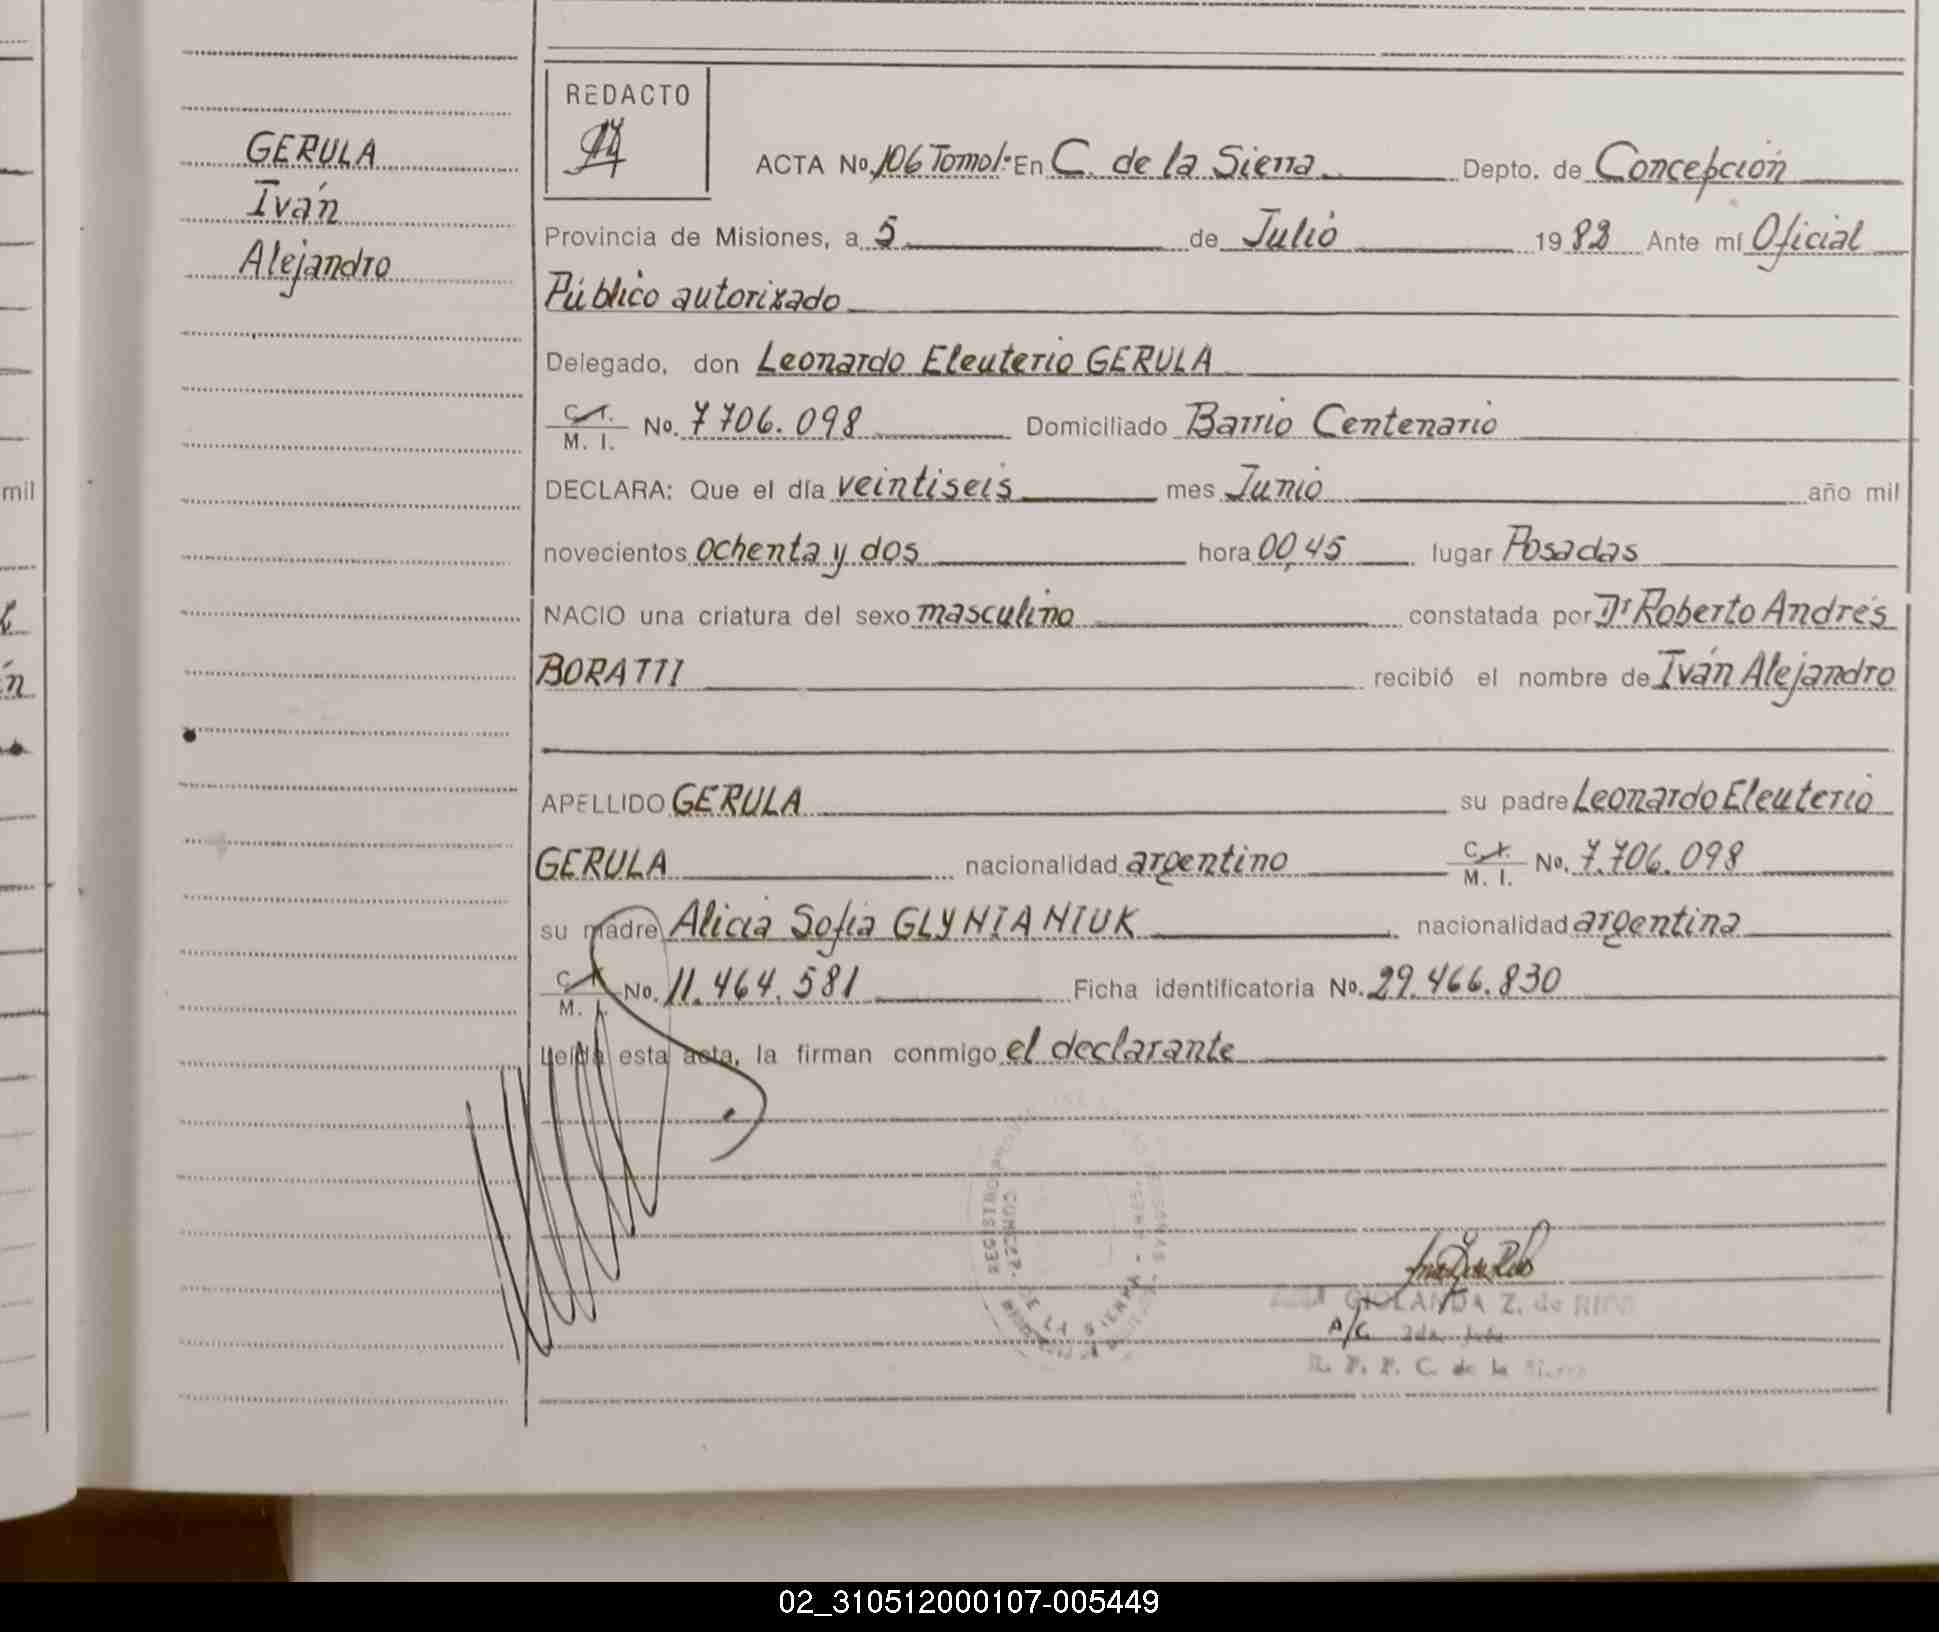 GERULA
Iván
Alejandro
REDACTO
ACTA No. 106 Tomo I: En C. de la Sierra Depto. de Concepción
Provincia de Misiones, a 5 de Julio 1982 Ante mí Oficial
Público autorizado
Delegado, don Leonardo Eleuterio GERULA
C. I.
M. I. No. 7706.098 Domiciliado Barrio Centenario
DECLARA: Que el día veintiseis mes Junio año mil
novecientos ochenta y dos hora 00,45 lugar Posadas
NACIO una criatura del sexo masculino constatada por Dr Roberto Andrés
BORATTI recibió el nombre de Iván Alejandro
APELLIDO GERULA su padre Leonardo Eleuterio
GERULA nacionalidad argentino C. I.
M. I. No. 7.706.098
su madre Alicia Sofia GLYNIANIUK nacionalidad argentina
C. I.
M. I. No. 11.464.581 Ficha identificatoria No. 29.466.830
Leída esta acta, la firman conmigo el declarante
GIOLANDA Z. de RIOS
A/C
R. P. P. C. de la Sierra
mil
02_310512000107-005449